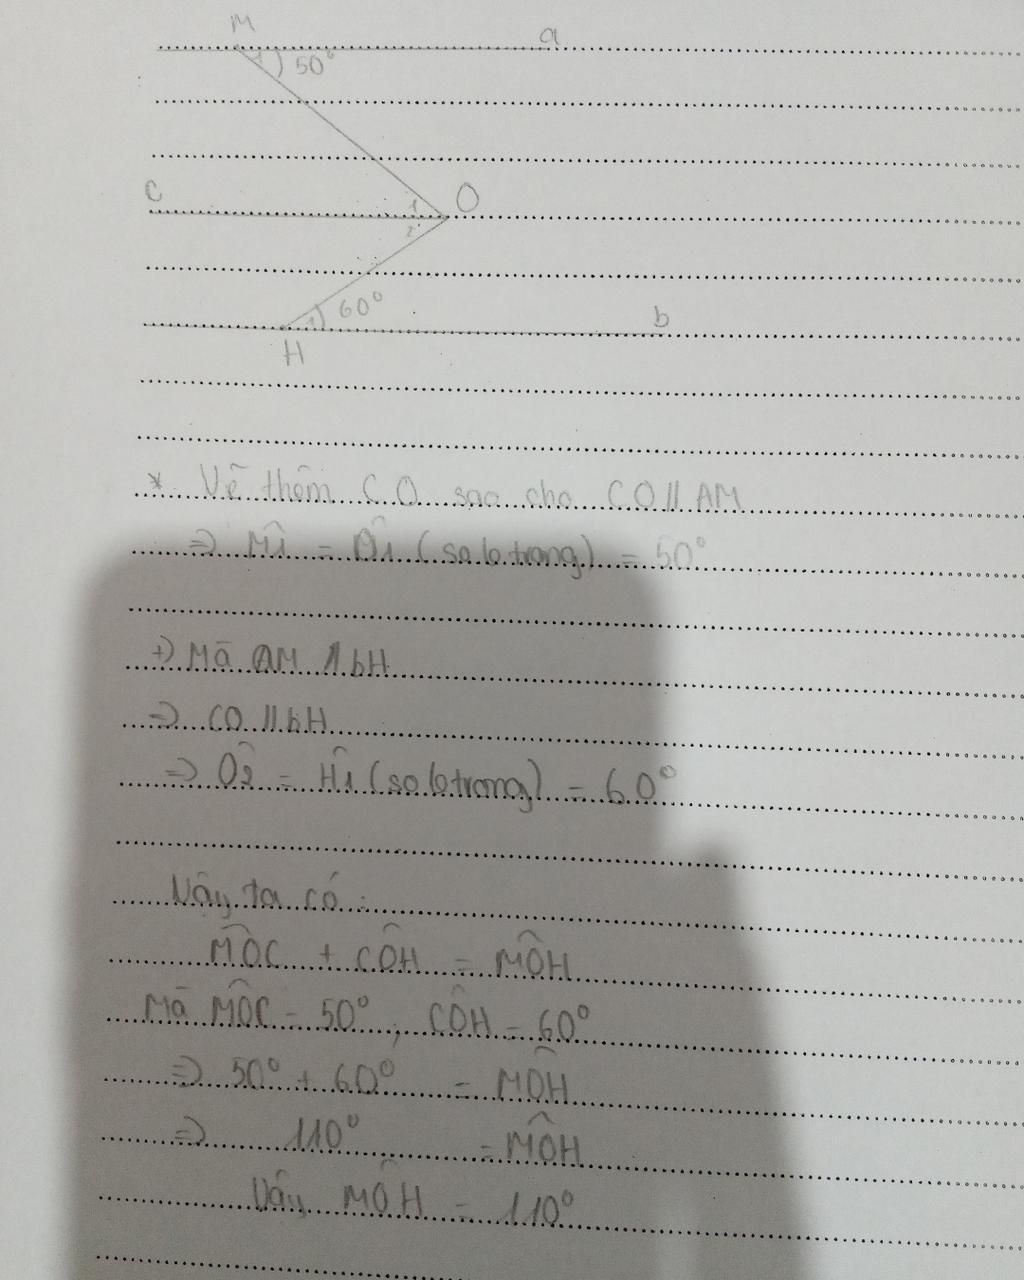 M
a
1
50°
C
1
O
2
60°
1
b
H
* Vẽ thêm CO sao cho CO // AM
=> M̂1 = Ô1 (so le trong) = 50°
+) Mà aM // bH
=> CO // bH
=> Ô2 = Ĥ1 (so le trong) = 60°
Vậy ta có:
MÔC + CÔH = MÔH
Mà MÔC = 50°, CÔH = 60°
=> 50° + 60° = MÔH
=> 110° = MÔH
Vậy MÔH = 110°